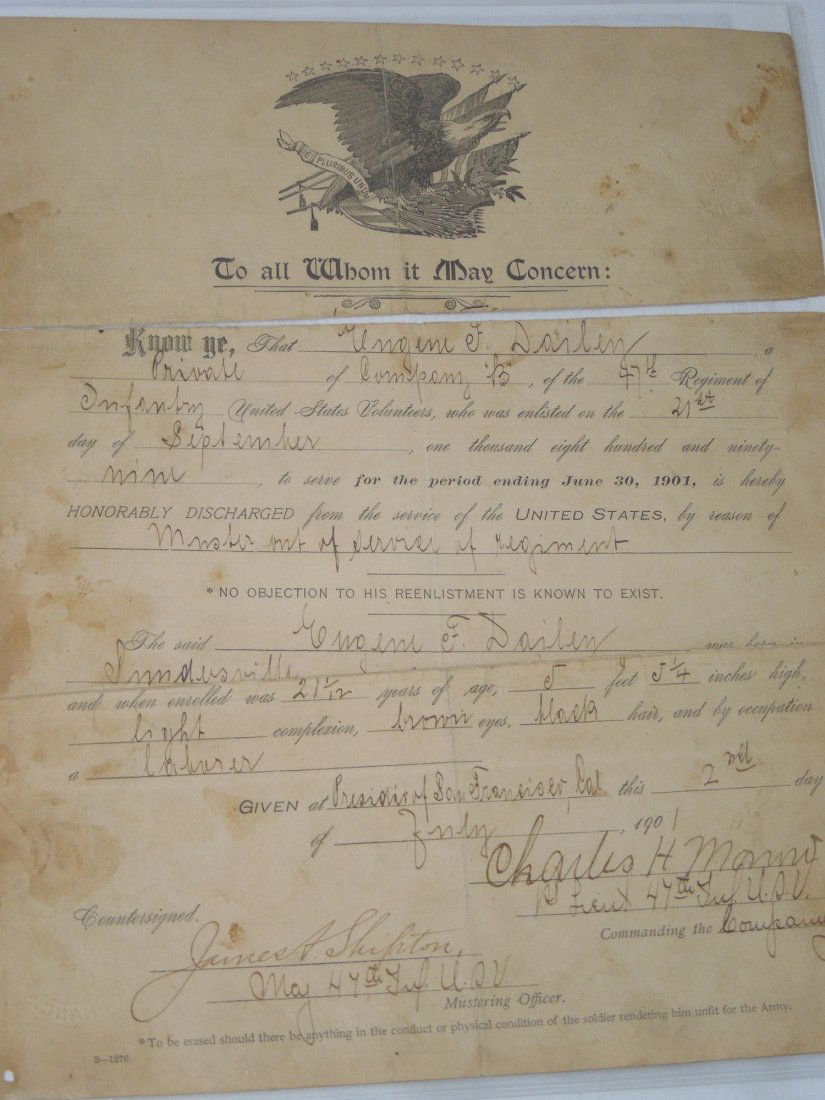 E PLURIBUS UNUM
To all Whom it May Concern:
Know ye, That Eugene F. Dailey a
Private of Company "B", of the 47th Regiment of
Infantry United States Volunteers, who was enlisted on the 21st
day of September, one thousand eight hundred and ninety-
nine, to serve for the period ending June 30, 1901, is hereby
HONORABLY DISCHARGED from the service of the UNITED STATES, by reason of
Muster out of service of regiment
* NO OBJECTION TO HIS REENLISTMENT IS KNOWN TO EXIST.
The said Eugene F. Dailey was born in
and when enrolled was 21 1/12 years of age, 5 feet 5 1/4 inches high,
light complexion, brown eyes, black hair, and by occupation
a laborer
GIVEN at Presidio of San Francisco, Cal. this 2nd day
of July, 1901
Charles H
1st Lieut 47th Inf. U.S.V.
Countersigned.
Commanding the Company
James A. Shipton,
Maj 47th Inf. U.S.V.
Mustering Officer.
*To be erased should there be anything in the conduct or physical condition of the soldier rendering him unfit for the Army.
S—1276